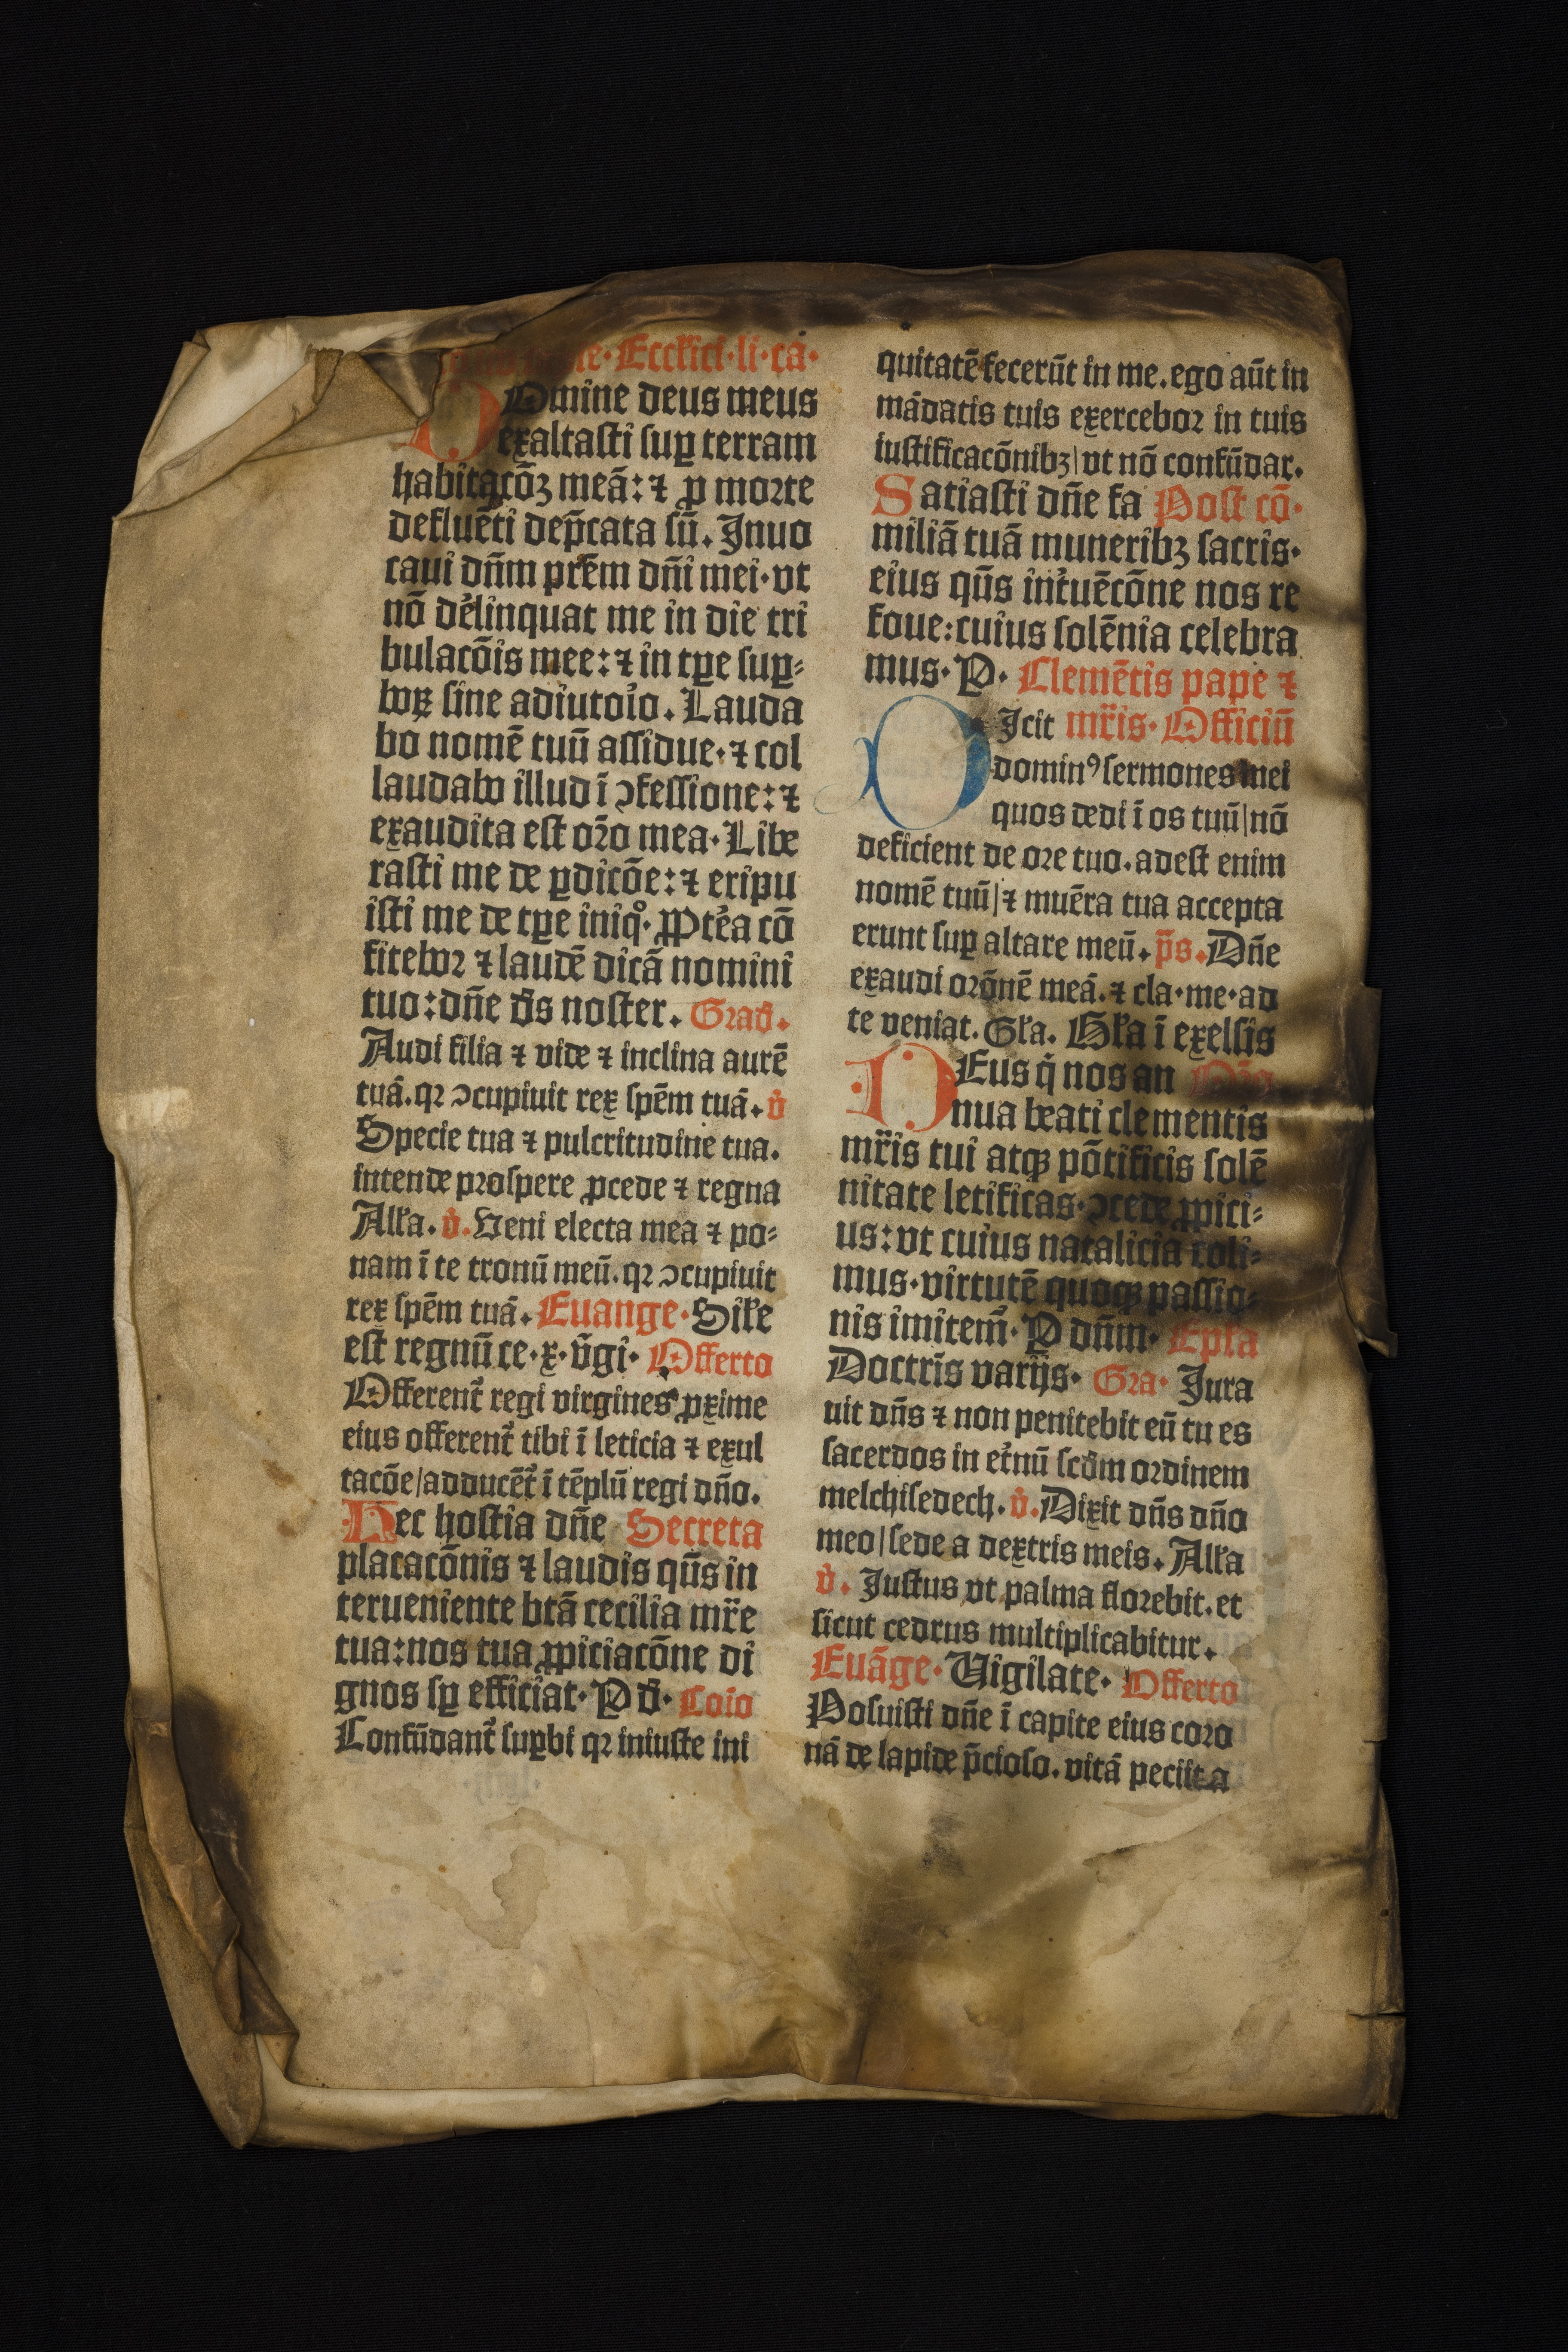 Eccl'ici·li·ca·
DOmine deus meus
exaltasti suꝑ terram
habitacōꝫ meā: ⁊ ꝓ morte
defluēti dep̄cata sū. Inuo
caui dn̄m pr̄em dn̄i mei·vt
nō de̾linquat me in die tri
bulacōis mee: ⁊ in tꝑe suꝑ⸗
boꝝ sine adiutoi̾o. Lauda
bo nomē tuū assidue· ⁊ col
laudabo illud ī ↄfessione: ⁊
exaudita est or̄o mea· Libe
rasti me de ꝑdicōe: ⁊ eripu
isti me de tꝑe iniqͦ· Ꝓpte̾a cō
fitebor ⁊ laudē dicā nomini
tuo: dn̄e d̄s noster. Grad̄.
Audi filia ⁊ vide ⁊ inclina aurē
tuā. qꝛ ↄcupiuit rex spēm tuā. v̾
Specie tua ⁊ pulcritudine tua.
intende prospere ꝓcede ⁊ regna
All'a. v̾. Veni electa mea ⁊ po⸗
nam ī te tronū meū. qꝛ ↄcupiuit
rex spēm tuā. Euange· Sil'e
est regnū ce·x·v̄gi· Offerto
Offerent᷑ regi virgines ꝓxime
eius offerent᷑ tibi ī leticia ⁊ exul
tacōe/adducēt᷑ ī tēplū regi dn̄o.
Hec hostia dn̄e Secreta
placacōnis ⁊ laudis qn̄s in
terueniente btā cecilia mr̄e
tua: nos tua ꝓpiciacōne di
gnos sꝑ efficiat· P d̄· Coīo
Confūdant᷑ suꝑbi qꝛ iniuste ini
quitatē fecerūt in me. ego aūt in
mādatis tuis exercebor in tuis
iustificacōnibꝫ/vt nō confūdar.
Satiasti dn̄e fa Post cō·
miliā tuā muneribꝫ sacris·
eius qn̄s int̾uēcōne nos re
foue: cuius solēnia celebra
mus· P· Clemētis pape ⁊
DIcit mr̄is· Officiū
dominꝰ sermones mei
quos dedi ī os tuū/nō
deficient de ore tuo. adest enim
nomē tuū/⁊ muēra tua accepta
erunt suꝑ altare meū. p̄s. Dn̄e
exaudi orōnē meā. ⁊ cla·me·ad
te veniat. Gl'a. Gl'a ī exelsis
DEus q̇ nos an
nua beati clementis
mr̄is tui atqꝫ pōtificis solē
nitate letificas· ↄcede ꝓpici⸗
us: vt cuius natalicia coli⸗
mus· virtutē quoqꝫ passio⸗
nis imitem᷑· P dn̄m· Epl'a
Doctris varijs· Gra· Iura
uit dn̄s ⁊ non penitebit eū tu es
sacerdos in et̾nū scd̄m ordinem
melchisedech. v̾. Dixit dn̄s dn̄o
meo/sede a dextris meis. All'a
v̾. Iustus vt palma florebit. et
sicut cedrus multiplicabitur.
Euāge· Vigilate· Offerto
Posuisti dn̄e ī capite eius coro
nā de lapide p̄cioso. vitā peciit a